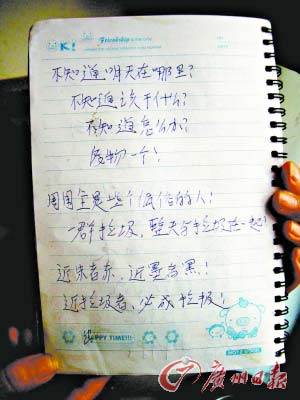 OK!
Friendship
不知道明天在哪里?
不知道该干什么?
不知道怎么办?
废物一个!
周围全是些个低俗的人!
一群垃圾,整天与垃圾在一起!
近朱者赤、近墨者黑!
近垃圾者、必成垃圾!
HAPPY TIME!!!
广州日报